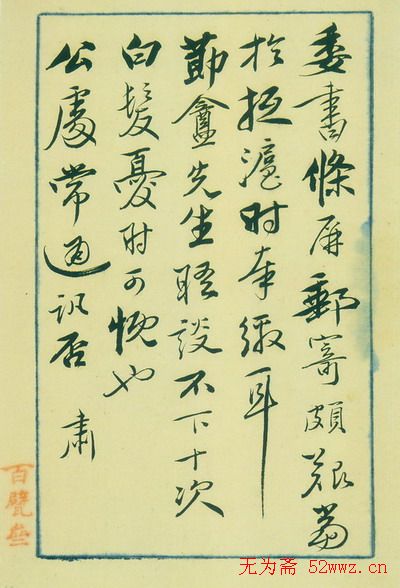 委書條屏郵寄頗艱當
於抵滬时奉繳耳
盦先生晤談不下十次
白髮憂时可慨也
公處常通訊否 肅
百甓
无为斋 52wwz.cn